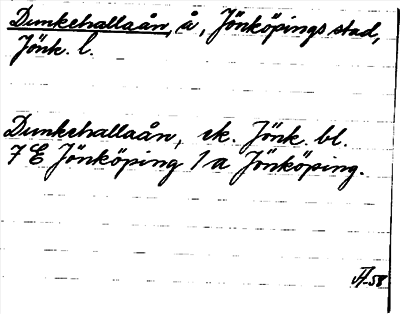 Dunkehallaån, å, Jönköpings stad,
Jönk. l.
Dunkehallaån, ek. Jönk. bl.
7 E Jönköping 1 a Jönköping.
-58